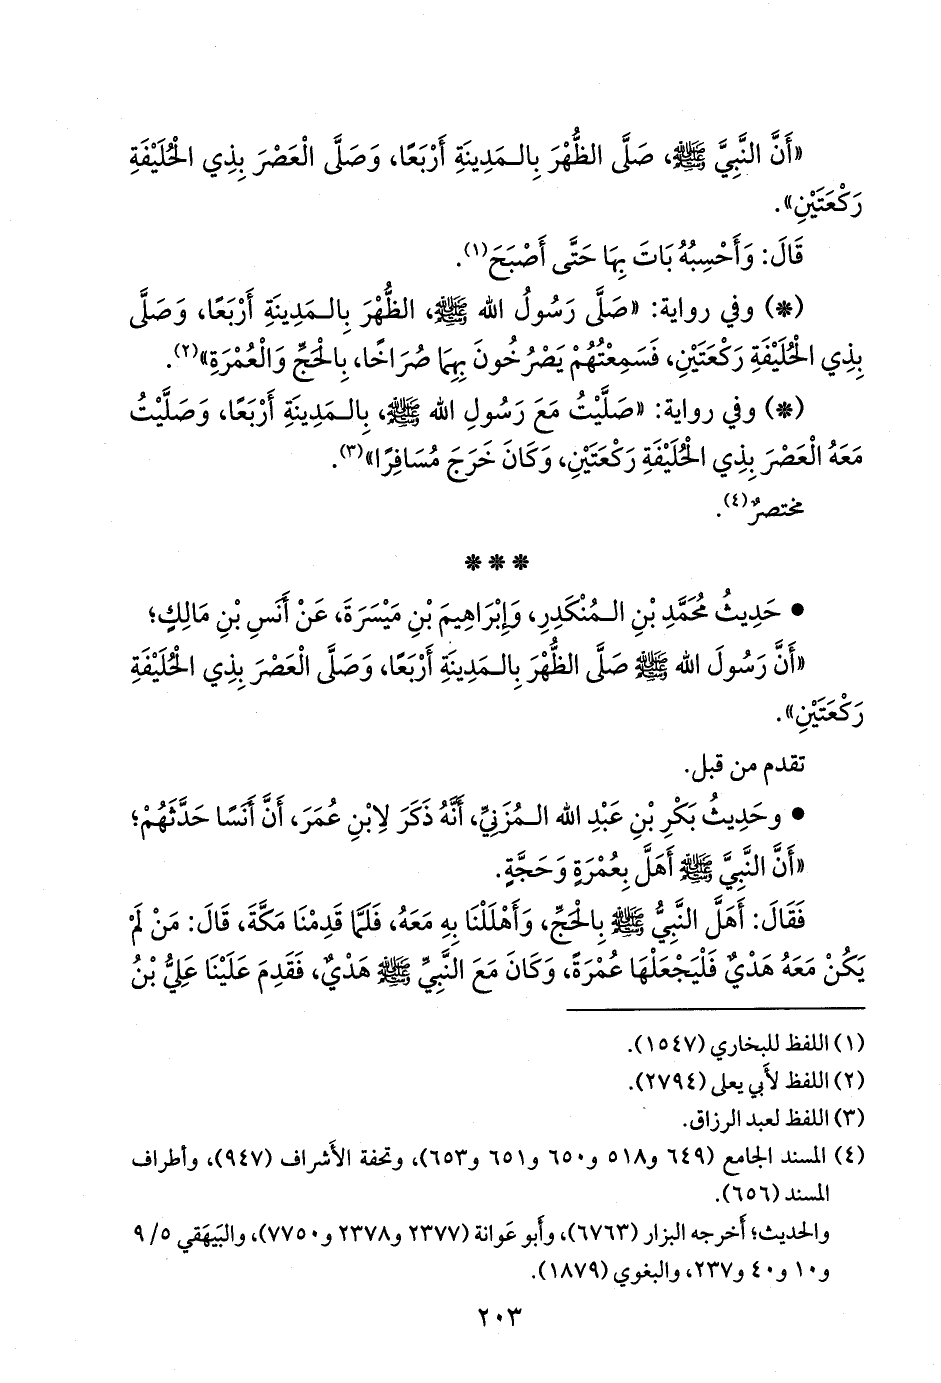 «أَنَّ النَّبِيَّ ﷺ، صَلَّى الظُّهْرَ بِالـمَدِينَةِ أَرْبَعًا، وَصَلَّى الْعَصْرَ بِذِي الْحُلَيْفَةِ
رَكْعَتَيْنِ».
قَالَ: وَأَحْسِبُهُ بَاتَ بِهَا حَتَّى أَصْبَحَ(١).
(*) وفي رواية: «صَلَّى رَسُولُ الله ﷺ، الظُّهْرَ بِالـمَدِينَةِ أَرْبَعًا، وَصَلَّى
بِذِي الْحُلَيْفَةِ رَكْعَتَيْنِ، فَسَمِعْتُهُمْ يَصْرُخُونَ بِهِمَا صُرَاخًا، بِالْحَجِّ وَالْعُمْرَةِ»(٢).
(*) وفي رواية: «صَلَّيْتُ مَعَ رَسُولِ الله ﷺ، بِالـمَدِينَةِ أَرْبَعًا، وَصَلَّيْتُ
مَعَهُ الْعَصْرَ بِذِي الْحُلَيْفَةِ رَكْعَتَيْنِ، وَكَانَ خَرَجَ مُسَافِرًا»(٣).
مختصرٌ(٤).
* * *
• حَدِيثُ مُحَمَّدِ بْنِ الـمُنْكَدِرِ، وَإِبْرَاهِيمَ بْنِ مَيْسَرَةَ، عَنْ أَنَسِ بْنِ مَالِكٍ؛
«أَنَّ رَسُولَ الله ﷺ صَلَّى الظُّهْرَ بِالـمَدِينَةِ أَرْبَعًا، وَصَلَّى الْعَصْرَ بِذِي الْحُلَيْفَةِ
رَكْعَتَيْنِ».
تقدم من قبل.
• وحَدِيثُ بَكْرِ بْنِ عَبْدِ الله الـمُزَنِيِّ، أَنَّهُ ذَكَرَ لِابْنِ عُمَرَ، أَنَّ أَنَسًا حَدَّثَهُمْ؛
«أَنَّ النَّبِيَّ ﷺ أَهَلَّ بِعُمْرَةٍ وَحَجَّةٍ.
فَقَالَ: أَهَلَّ النَّبِيُّ ﷺ بِالْحَجِّ، وَأَهْلَلْنَا بِهِ مَعَهُ، فَلَمَّا قَدِمْنَا مَكَّةَ، قَالَ: مَنْ لَمْ
يَكُنْ مَعَهُ هَدْيٌ فَلْيَجْعَلْهَا عُمْرَةً، وَكَانَ مَعَ النَّبِيِّ ﷺ هَدْيٌ، فَقَدِمَ عَلَيْنَا عَلِيُّ بْنُ
(١) اللفظ للبخاري (١٥٤٧).
(٢) اللفظ لأَبي يعلى (٢٧٩٤).
(٣) اللفظ لعبد الرزاق.
(٤) المسند الجامع (٦٤٩ و٥١٨ و٦٥٠ و٦٥١ و٦٥٣)، وتحفة الأَشراف (٩٤٧)، وأَطراف
المسند (٦٥٦).
والحديث؛ أَخرجه البزار (٦٧٦٣)، وأَبو عَوانة (٢٣٧٧ و٢٣٧٨ و٧٧٥٠)، والبَيهَقي ٥/ ٩
و١٠ و٤٠ و٢٣٧، والبغوي (١٨٧٩).
٢٠٣